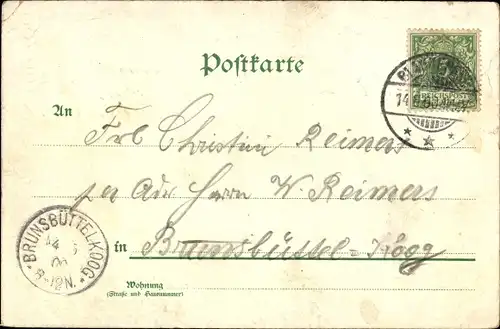 Postkarte
An
Frl Christine Reimers
per Adr Herrn W. Reimers
in Brunsbüttel-Koog
Wohnung
(Straße und Hausnummer)
BRUNSBÜTTELKOOG
8-12N.